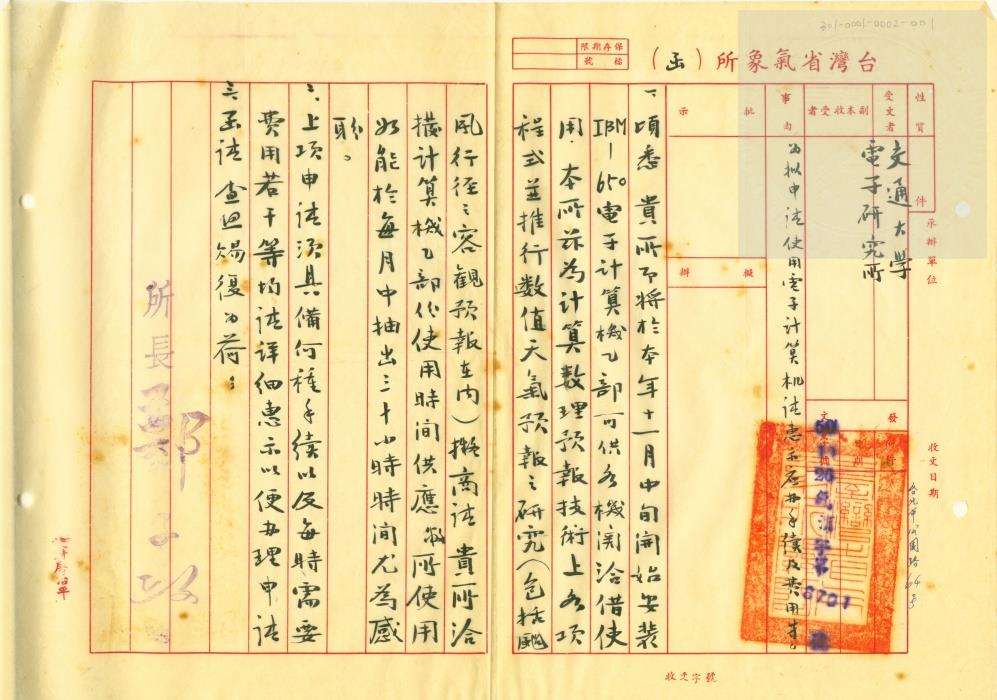 301-0001-0002-001
台灣省氣象所（函）
保存期限
檔號
性質
件
受文者
交通大學
電子研究所
副本收受者
批示
擬辦
承辦單位
事由
為拟申請使用電子計算机請惠示应办手續及費用
收文日期
發文
50 11 20
8701
一、頃悉 貴所即將於本年十一月中旬開始安裝
IBM-650電子計算機乙部可供各機関洽借使
用．本所亦為計算数理預報技術上各項
程式並推行数值天氣預報之研究（包括颱
風行徑之客観預報在內）擬商請 貴所洽
撥計算機乙部份使用時间供應敝所使用
如能於每月中抽出三十小時時间尤為感
盼。
二、上項申請須具備何種手續以及每時需要
費用若干等均請詳細惠示以便办理申請
三、函請 查照賜復為荷：
所長鄭子政
台北市公園路64号
收文字號